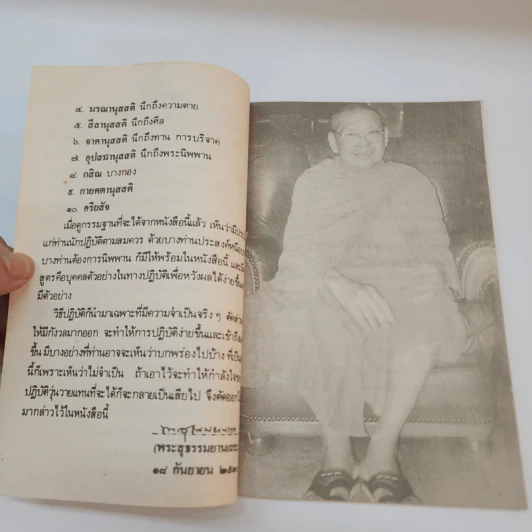 ๔. มรณานุสสติ นึกถึงความตาย
๕. สีลานุสสติ นึกถึงศีล
๖. จาคานุสสติ นึกถึงทาน การบริจาค
๗. อุปสมานุสสติ นึกถึงพระนิพพาน
๘. กสิณ บางกอง
๙. กายคตานุสสติ
๑๐. อริยสัจ
เมื่อดูกรรมฐานที่จะได้จากหนังสือนี้แล้ว เห็นว่ามี
แก่ท่านนักปฏิบัติตามสมควร ด้วยบางท่านประสงค์
บางท่านต้องการนิพพาน ก็มีให้พร้อมในหนังสือนี้
สูตรคือบุคคลตัวอย่างในทางปฏิบัติเพื่อหวังผลได้ง่ายขึ้น
มีตัวอย่าง
วิธีปฏิบัติก็นำมาเฉพาะที่มีความจำเป็นจริง ๆ
ให้มีกังวลมากออก จะทำให้การปฏิบัติง่ายขึ้นและเข้าถึง
ขึ้น มีบางอย่างที่ท่านอาจจะเห็นว่าบกพร่องไปบ้าง ที่เป็น
นี้ก็เพราะเห็นว่าไม่จำเป็น ถ้าเอาไว้จะทำให้กำลังใจ
ปฏิบัติวุ่นวายแทนที่จะได้ก็จะกลายเป็นเสียไป จึงตัดออก
มากล่าวไว้ในหนังสือนี้
(พระสุธรรมยานเถระ)
๑๘ กันยายน